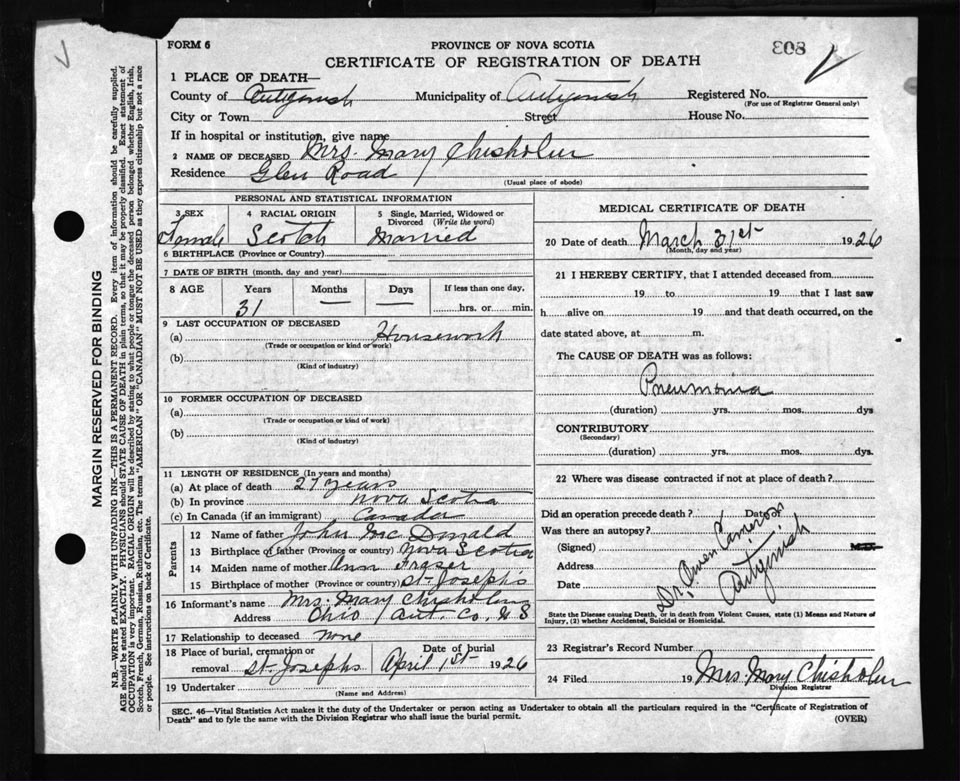 FORM 6
PROVINCE OF NOVA SCOTIA
808
CERTIFICATE OF REGISTRATION OF DEATH
1 PLACE OF DEATH—
County of Antigonish Municipality of Antigonish Registered No.
(For use of Registrar General only)
City or Town Street House No.
If in hospital or institution, give name
2 NAME OF DECEASED Mrs. Mary Chisholm
Residence Glen Road
(Usual place of abode)
PERSONAL AND STATISTICAL INFORMATION
3 SEX 4 RACIAL ORIGIN 5 Single, Married, Widowed or Divorced (Write the word)
Female Scotch Married
6 BIRTHPLACE (Province or Country)
7 DATE OF BIRTH (month, day and year)
8 AGE Years Months Days If less than one day,
31 — — hrs. or min.
9 LAST OCCUPATION OF DECEASED
(a) Housework
(Trade or occupation or kind of work)
(b)
(Kind of industry)
10 FORMER OCCUPATION OF DECEASED
(a)
(Trade or occupation or kind of work)
(b)
(Kind of industry)
11 LENGTH OF RESIDENCE (In years and months)
(a) At place of death 27 years
(b) In province Nova Scotia
(c) In Canada (if an immigrant) Canada
Parents
12 Name of father John Mc Donald
13 Birthplace of father (Province or country) Nova Scotia
14 Maiden name of mother Ann Fraser
15 Birthplace of mother (Province or country) St. Joseph's
16 Informant's name Mrs. Mary Chisholm
Address Ohio Ant. Co. N S
17 Relationship to deceased None
18 Place of burial, cremation or Date of burial
removal St. Josephs April 1st 1926
19 Undertaker
(Name and Address)
MEDICAL CERTIFICATE OF DEATH
20 Date of death March 31st 1926
(Month, day and year)
21 I HEREBY CERTIFY, that I attended deceased from
19 to 19 that I last saw
h alive on 19 and that death occurred, on the
date stated above, at m.
The CAUSE OF DEATH was as follows:
Pneumonia
(duration) yrs. mos. dys
CONTRIBUTORY
(Secondary)
(duration) yrs. mos. dys.
22 Where was disease contracted if not at place of death?
Did an operation precede death? Date of
Was there an autopsy?
(Signed) M.D.
Address
Date
Dr. Owen Cameron
Antigonish
State the Disease causing Death, or in death from Violent Causes, state (1) Means and Nature of
Injury, (2) whether Accidental, Suicidal or Homicidal.
23 Registrar's Record Number
24 Filed 19 Mrs. Mary Chisholm
Division Registrar
SEC. 46—Vital Statistics Act makes it the duty of the Undertaker or person acting as Undertaker to obtain all the particulars required in the "Certificate of Registration of
Death" and to fyle the same with the Division Registrar who shall issue the burial permit.
(OVER)
MARGIN RESERVED FOR BINDING
N.B.—WRITE PLAINLY WITH UNFADING INK—THIS IS A PERMANENT RECORD. Every item of information should be carefully supplied.
AGE should be stated EXACTLY. PHYSICIANS should STATE CAUSE OF DEATH in plain terms, so that it may be properly classified. Exact statement of
OCCUPATION is very important. RACIAL ORIGIN will be described by stating to what people or tongue the deceased person belonged whether English, Irish,
Scotch, French, German, Russian, Ruthenian, etc. The terms "AMERICAN" OR "CANADIAN" MUST NOT BE USED as they express citizenship but not a race
or people. See instructions on back of Certificate.